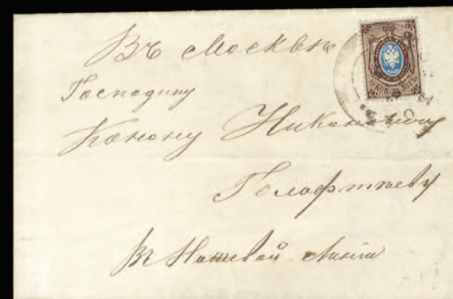 Въ Москвѣ
Господину
Канону Никоновичу
Голофтѣеву
въ Ножевой линіи